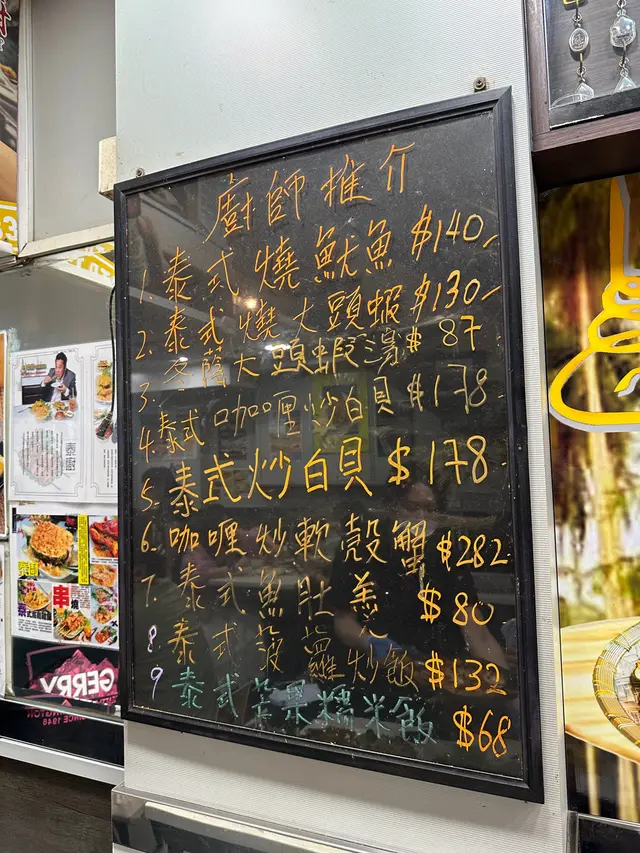 廚師推介
1. 泰式燒魷魚 $140
2. 泰式燒大頭蝦 $130
3. 冬蔭大頭蝦湯 $87
4. 泰式咖喱炒白貝 $178
5. 泰式炒白貝 $178
6. 咖喱炒軟殼蟹 $282
7. 泰式魚肚羹 $80
8 泰式菠蘿炒飯 $132
9 泰式芒果糯米飯 $68
串燒
GERRY
SINCE 1946